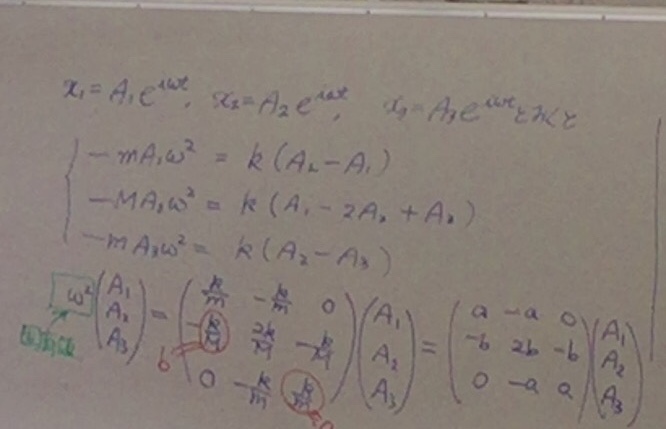 x₁=A₁e^{iωt}, x₂=A₂e^{iωt}, x₃=A₃e^{iωt}とおくと
-mA₁ω² = k(A₂-A₁)
-MA₂ω² = k(A₁-2A₂+A₃)
-mA₃ω² = k(A₂-A₃)
ω²(A₁ A₂ A₃) = (k/m -k/m 0 -k/M 2k/M -k/M 0 -k/m k/m)(A₁ A₂ A₃) = (a -a 0 -b 2b -b 0 -a a)(A₁ A₂ A₃)
固有値 b a